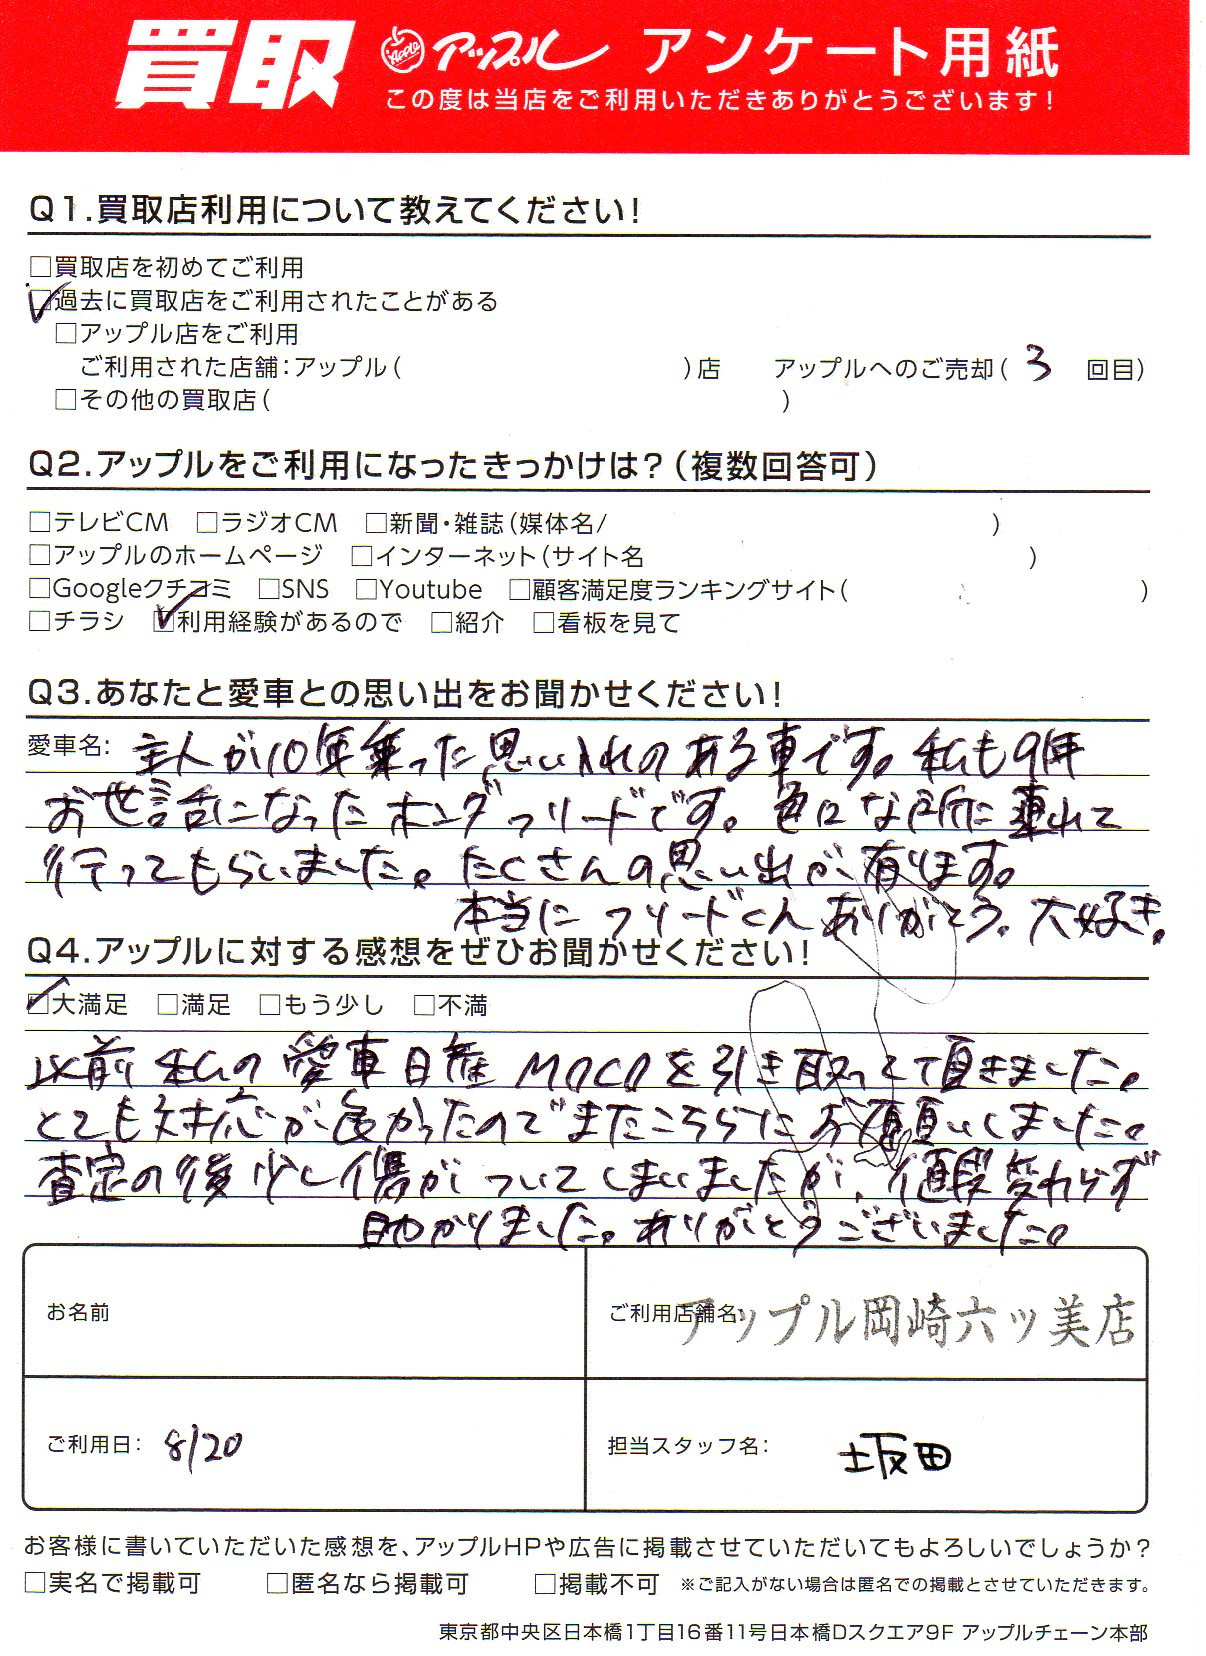 買取 Apple アップル アンケート用紙
この度は当店をご利用いただきありがとうございます!
Q1.買取店利用について教えてください!
□買取店を初めてご利用
☑過去に買取店をご利用されたことがある
□アップル店をご利用
ご利用された店舗:アップル( )店 アップルへのご売却( 3 回目)
□その他の買取店( )
Q2.アップルをご利用になったきっかけは?(複数回答可)
□テレビCM □ラジオCM □新聞・雑誌(媒体名/ )
□アップルのホームページ □インターネット(サイト名 )
□Googleクチコミ □SNS □Youtube □顧客満足度ランキングサイト( )
□チラシ ☑利用経験があるので □紹介 □看板を見て
Q3.あなたと愛車との思い出をお聞かせください!
愛車名: 主人が10年乗った思い入れのある車です。私も9年
お世話になったホンダフリードです。色んな所に連れて
行ってもらいました。たくさんの思い出が有ります。
本当にフリードくんありがとう。大好き。
Q4.アップルに対する感想をぜひお聞かせください!
☑大満足 □満足 □もう少し □不満
以前私の愛車日産MOCOを引き取って頂きました。
とても対応が良かったのでまたこちらにお願いしました。
査定の後少し傷がついてしまいましたが、値段変わらず
助かりました。ありがとうございました。
お名前
ご利用店舗名: アップル岡崎六ッ美店
ご利用日: 8/20
担当スタッフ名: 坂田
お客様に書いていただいた感想を、アップルHPや広告に掲載させていただいてもよろしいでしょうか?
□実名で掲載可 □匿名なら掲載可 □掲載不可 ※ご記入がない場合は匿名での掲載とさせていただきます。
東京都中央区日本橋1丁目16番11号日本橋Dスクエア9F アップルチェーン本部